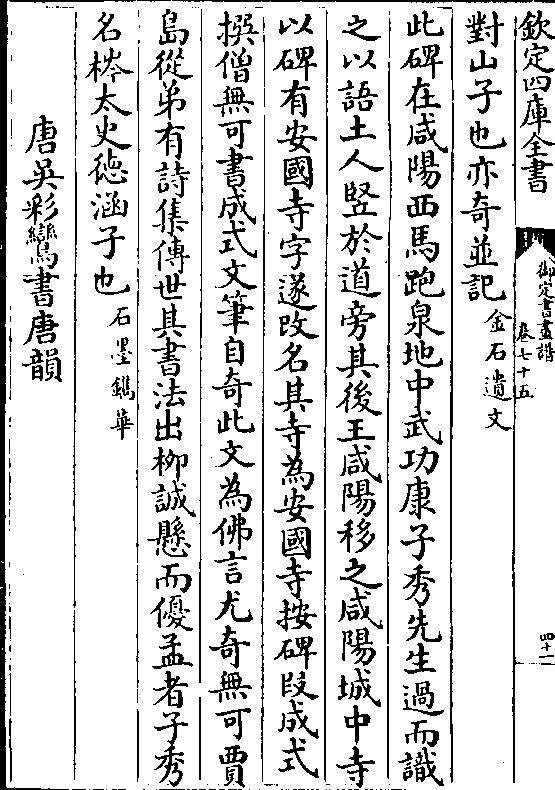 欽定四庫全書
御定書畫譜
卷七十五
四十一
對山子也亦奇並記金石遺文
此碑在咸陽西馬跑泉地中武功康子秀先生過而識
之以語土人豎於道旁其後王咸陽移之咸陽城中寺
以碑有安國寺字遂改名其寺為安國寺按碑段成式
撰僧無可書成式文筆自奇此文為佛言尤奇無可賈
島從弟有詩集傳世其書法出栁誠懸而優孟者子秀
名梣太史徳涵子也石墨鐫華
唐吳彩鸞書唐韻